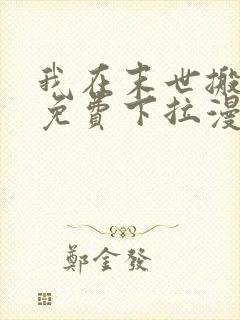 我在末世搬
免費下拉漫
鄭金發